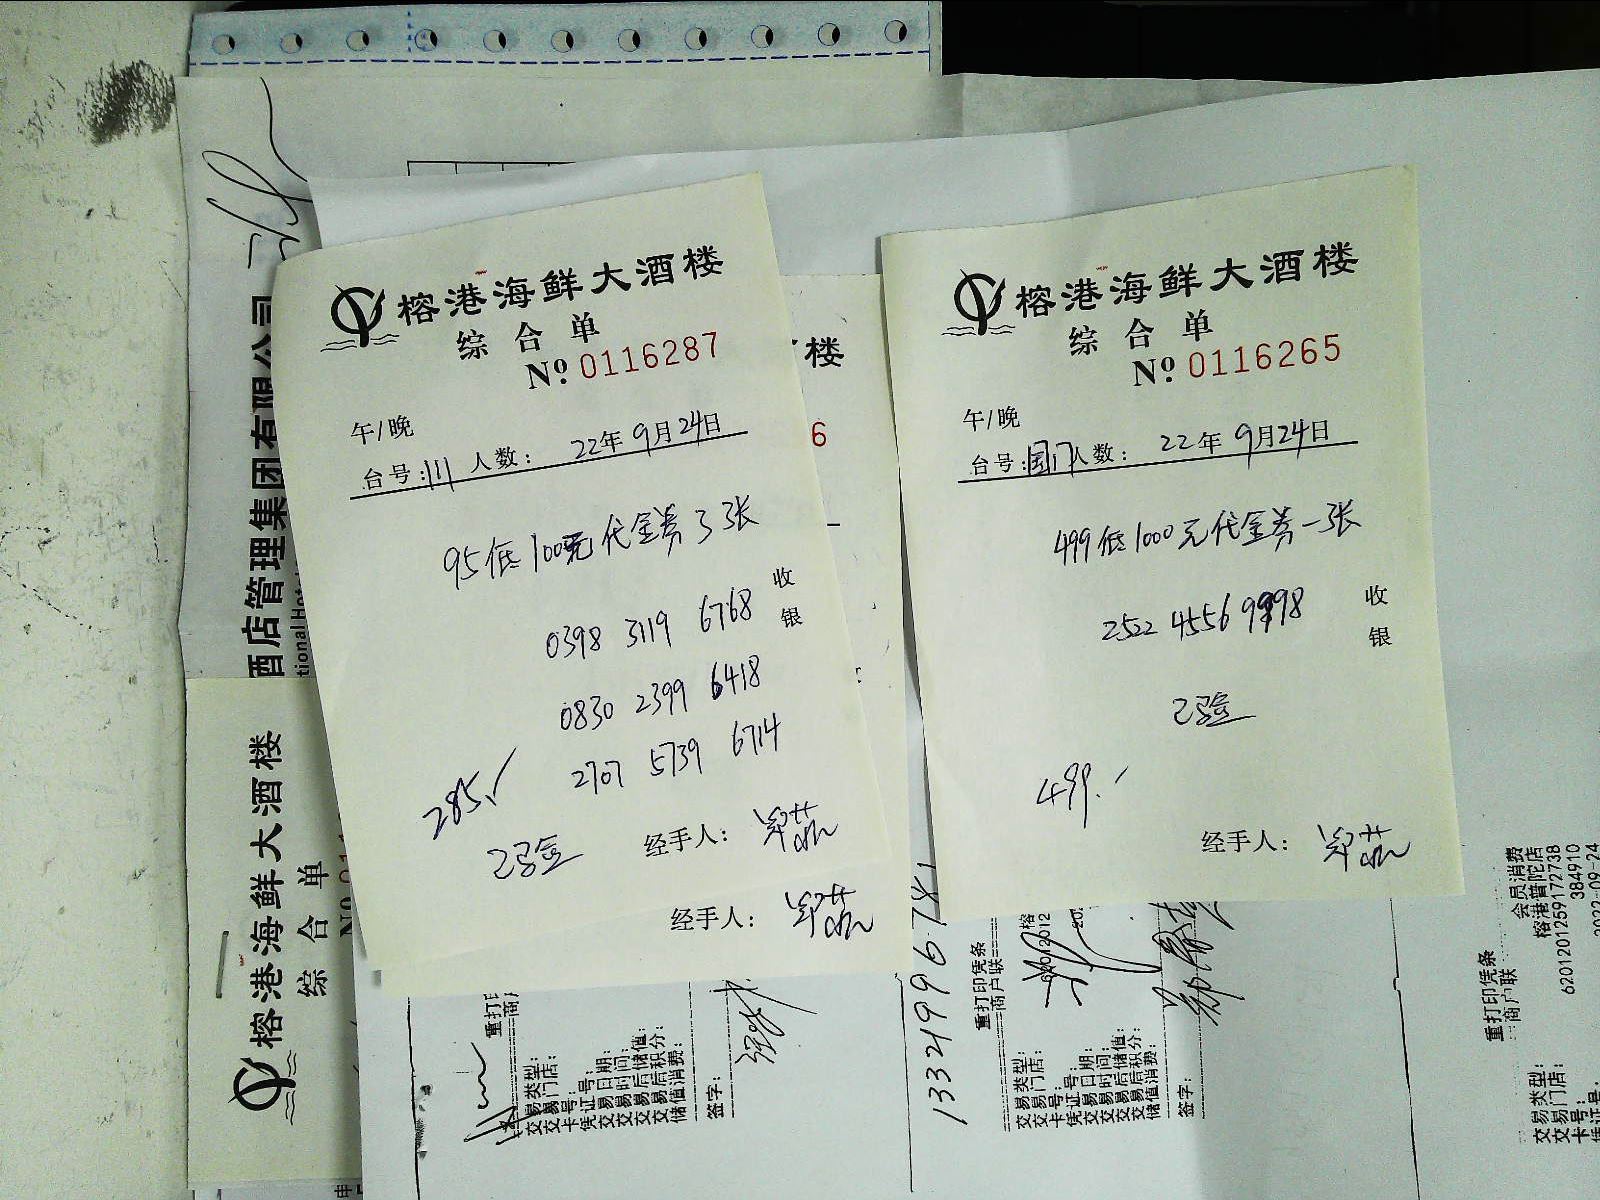 榕港海鲜大酒楼
综合单
Nº 0116287
午/晚
台号:111 人数: 22年9月24日
95低100元代金券3张
0398 3119 6768
0830 2399 6418
2707 5739 6714
收银
285.✓
已验
经手人:
经手人:
楼
6
榕港海鲜大酒楼
综合单
Nº 0116265
午/晚
台号:国门 人数: 22年9月24日
499低1000元代金券一张
2522 4556 9998
收银
已验
499.
经手人:
酒店管理集团有限公司
tional Hot
榕港海鲜大酒楼
综合单
重打印凭条
交易类型:
交易门店:
卡号:
凭证号:
交易日期:
交易时间:
交易后储值:
交易后积分:
储值消费:
签字:
13321996781
重打印凭条
商户联
交易类型:
交易门店:
卡号:
凭证号:
交易日期:
交易时间:
交易后储值:
交易后积分:
储值消费:
签字:
重打印凭条
商户联
交易类型: 会员消费
交易门店: 榕港普陀店
卡号: 6201201259172738
凭证号: 384910
2022-09-24